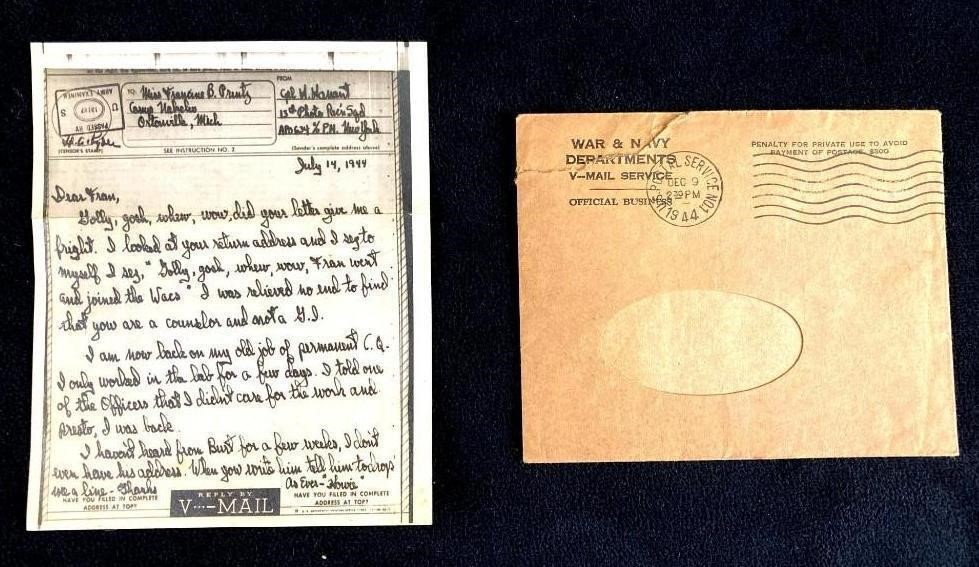 ARMY EXAMINER
U S
PASSED BY
(CENSOR'S STAMP)
TO: Miss Francine B. Printz
Camp
Ortonville, Mich
SEE INSTRUCTION NO. 2
FROM
Cpl
13th Photo Rec'n Sqd
APO 634 % P.M. New York
(Sender's complete address above)
July 14, 1944
Dear Fran,
Golly, gosh, whew, wow, did your letter give me a
fright. I looked at your return address and I sez to
myself I sez, "Golly, gosh, whew, wow, Fran went
and joined the Wacs" I was relieved no end to find
that you are a counselor and not a G.I.
I am now back on my old job of permanent C.Q.
I only worked in the lab for a few days. I told one
of the Officers that I didn't care for the work and
Presto, I was back.
I haven't heard from Burt for a few weeks, I don't
even have his address. When you write him tell him to drop
me a line - Thanks
As Ever - "Howie"
HAVE YOU FILLED IN COMPLETE
ADDRESS AT TOP?
REPLY BY
V···—MAIL
HAVE YOU FILLED IN COMPLETE
ADDRESS AT TOP?
WAR & NAVY
DEPARTMENTS
V-MAIL SERVICE
OFFICIAL BUSINESS
U.S. POSTAL SERVICE NO. 1
DEC 9
2 30 PM
1944
PENALTY FOR PRIVATE USE TO AVOID
PAYMENT OF POSTAGE, $300